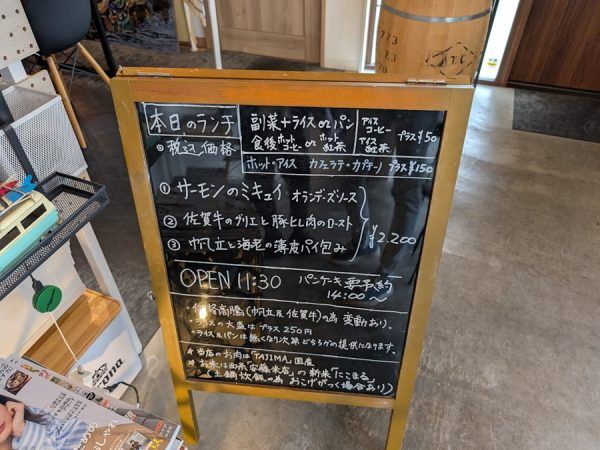 本日のランチ
◎税込価格
副菜+ライス or パン
食後 ホットコーヒー or ホット紅茶
アイスコーヒー
アイス紅茶
プラス¥50
ホット・アイス カフェラテ・カプチーノ プラス¥150
① サーモンのミキュイ オランデーズソース
② 佐賀牛のグリエと豚ヒレ肉のロースト
③ 帆立と海老の薄皮パイ包み
¥2.200
OPEN 11:30 パンケーキ 要予約
14:00〜
価格高騰(帆立貝 佐賀牛)の為 変動あり。
ライスの大盛はプラス250円
ライス・パンは無くなり次第 どちらかの提供になります。
当店のお肉は「TAJIMA」国産
お米は 「安藤米店」の新米「にこまる」
土鍋炊飯の為 おこげがつく場合あり)